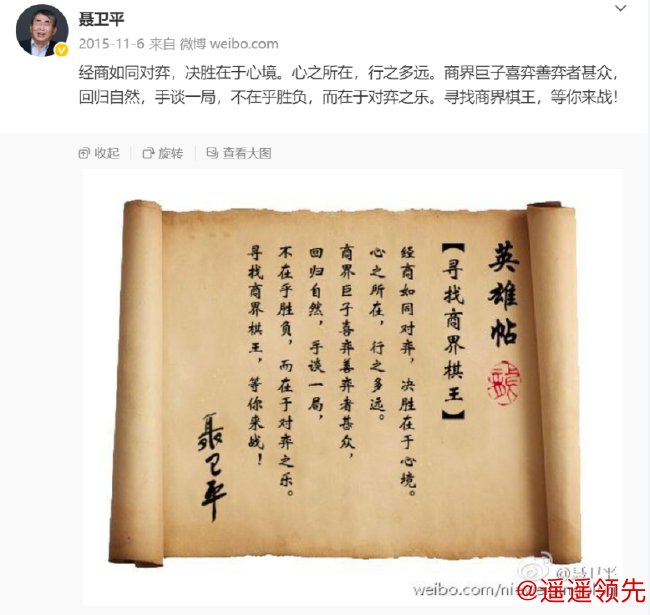 聂卫平
2015-11-6 来自 微博 weibo.com
经商如同对弈，决胜在于心境。心之所在，行之多远。商界巨子喜弈善弈者甚众，
回归自然，手谈一局，不在乎胜负，而在于对弈之乐。寻找商界棋王，等你来战！
收起
旋转
查看大图
英雄帖
【寻找商界棋王】
经商如同对弈，决胜在于心境。
心之所在，行之多远。
商界巨子喜弈善弈者甚众，
回归自然，手谈一局，
不在乎胜负，而在于对弈之乐。
寻找商界棋王，等你来战！
聂卫平
@聂卫平
@遥遥领先